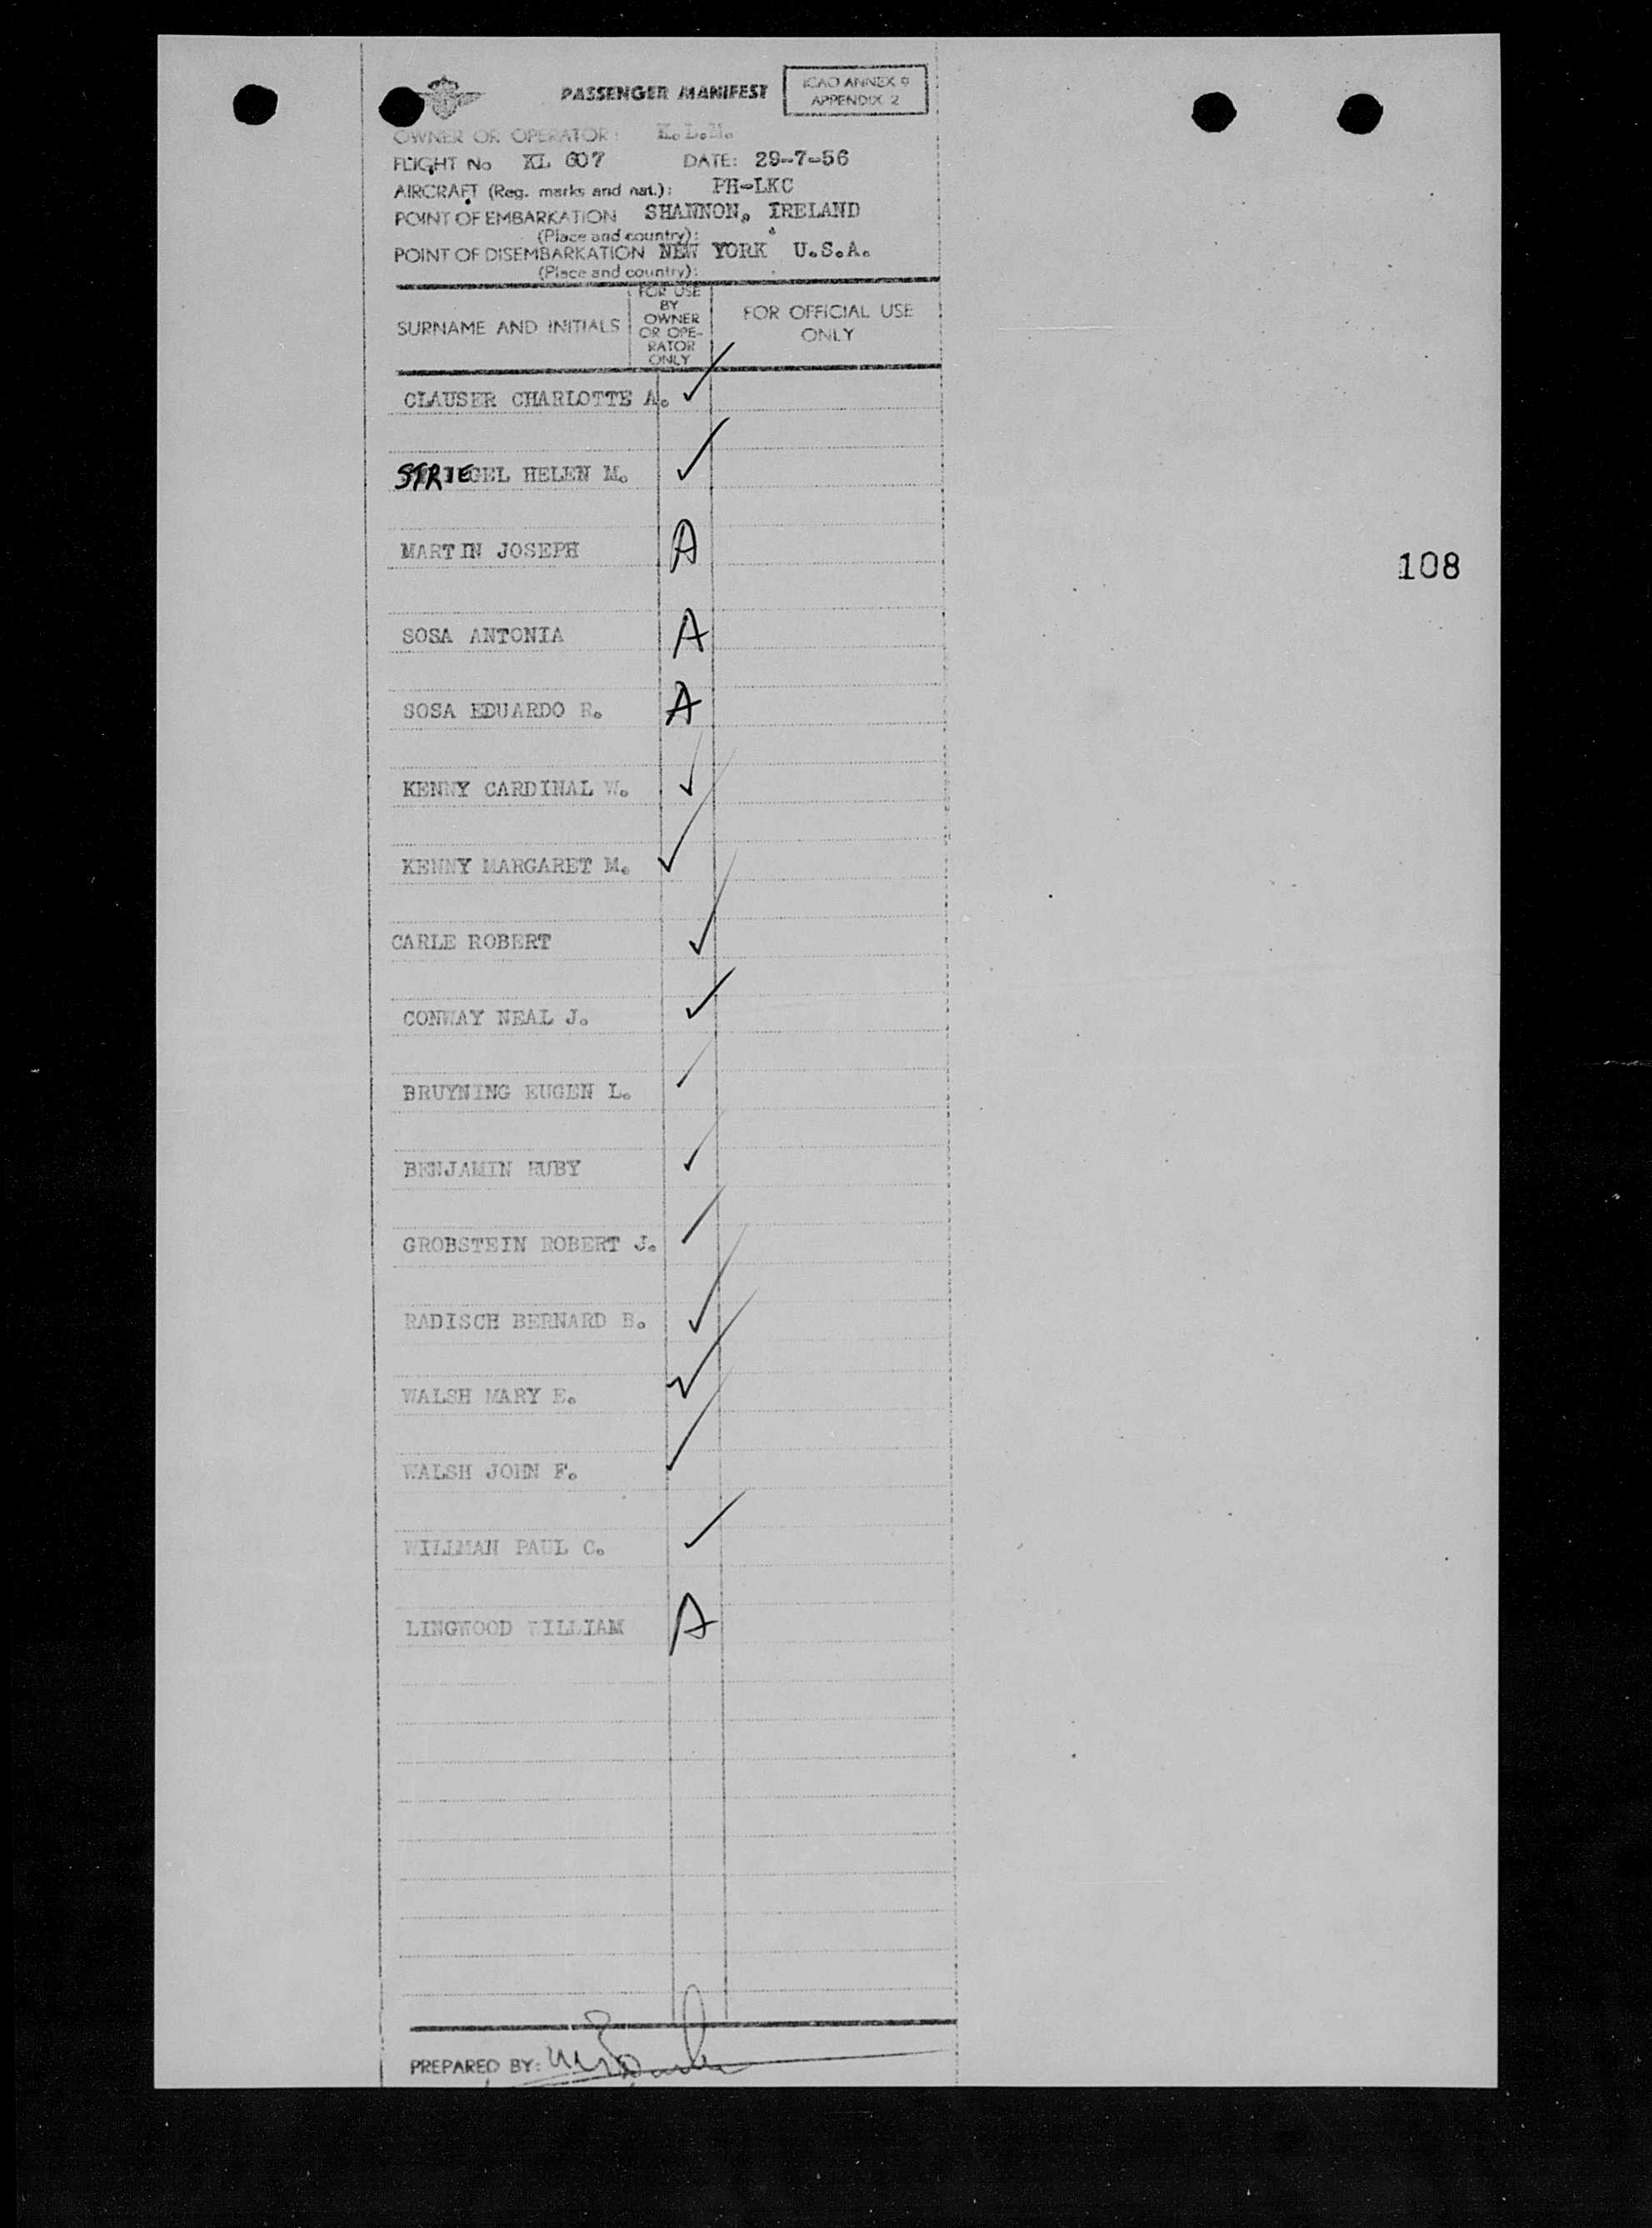 PASSENGER MANIFEST
ICAO ANNEX 9
APPENDIX 2
OWNER OR OPERATOR: K.L.M.
FLIGHT No KL 607 DATE: 29-7-56
AIRCRAFT (Reg. marks and nat.): PH-LKC
POINT OF EMBARKATION SHANNON, IRELAND
(Place and country):
POINT OF DISEMBARKATION NEW YORK U.S.A.
(Place and country):
SURNAME AND INITIALS
FOR USE
BY
OWNER
OR OPE-
RATOR
ONLY
FOR OFFICIAL USE
ONLY
CLAUSER CHARLOTTE A. ✓
STRIEGEL HELEN M. ✓
MARTIN JOSEPH A
108
SOSA ANTONIA A
SOSA EDUARDO R. A
KENNY CARDINAL W. ✓
KENNY MARGARET M. ✓
CARLE ROBERT ✓
CONWAY NEAL J. ✓
BRUYNING EUGEN L. ✓
BENJAMIN RUBY ✓
GROBSTEIN ROBERT J. ✓
RADISCH BERNARD B. ✓
WALSH MARY E. ✓
WALSH JOHN F. ✓
WILLMAN PAUL C. ✓
LINGWOOD WILLIAM A
PREPARED BY: